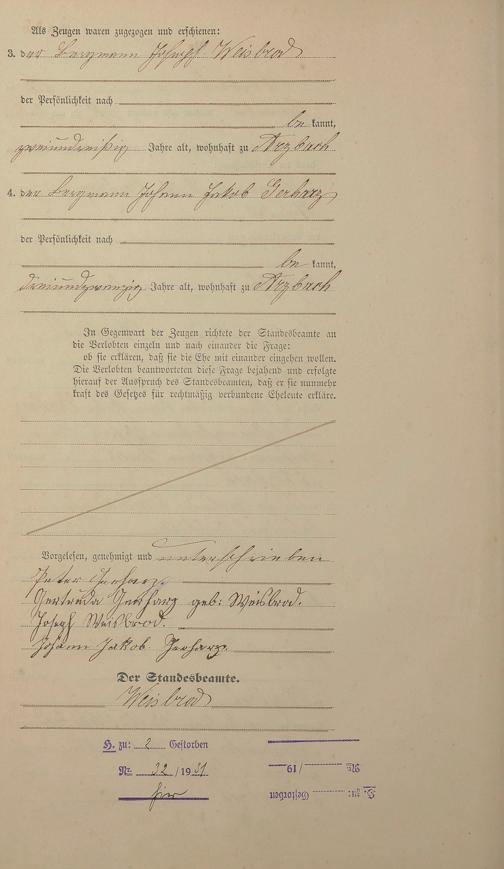 Als Zeugen waren zugezogen und erschienen:
3. der Bergmann Joseph Weisbrod
der Persönlichkeit nach
be kannt,
zweiunddreißig Jahre alt, wohnhaft zu Arzbach
4. der Bergmann Johann Jakob Gerharz
der Persönlichkeit nach
be kannt,
dreiundzwanzig Jahre alt, wohnhaft zu Arzbach
In Gegenwart der Zeugen richtete der Standesbeamte an
die Verlobten einzeln und nach einander die Frage:
ob sie erklären, daß sie die Ehe mit einander eingehen wollen.
Die Verlobten beantworteten diese Frage bejahend und erfolgte
hierauf der Ausspruch des Standesbeamten, daß er sie nunmehr
kraft des Gesetzes für rechtmäßig verbundene Eheleute erkläre.
Vorgelesen, genehmigt und unterschrieben
Peter Gerharz.
Gertruda Gerharz geb: Weisbrod.
Joseph Weisbrod.
Johann Jakob Gerharz.
Der Standesbeamte.
Weisbrod
H. zu: 2 Gestorben
Nr. 32 / 1931
hier
F. zu: Gestorben
Nr. / 19